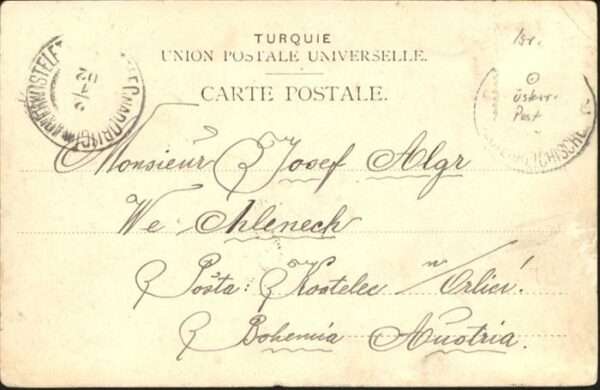 TURQUIE
UNION POSTALE UNIVERSELLE.
CARTE POSTALE.
Isr.
österr.
Post
Monsieur Josef Algr
We Chlenech
Pošta: Kostelec n/Orlicí.
Bohemia Austria.